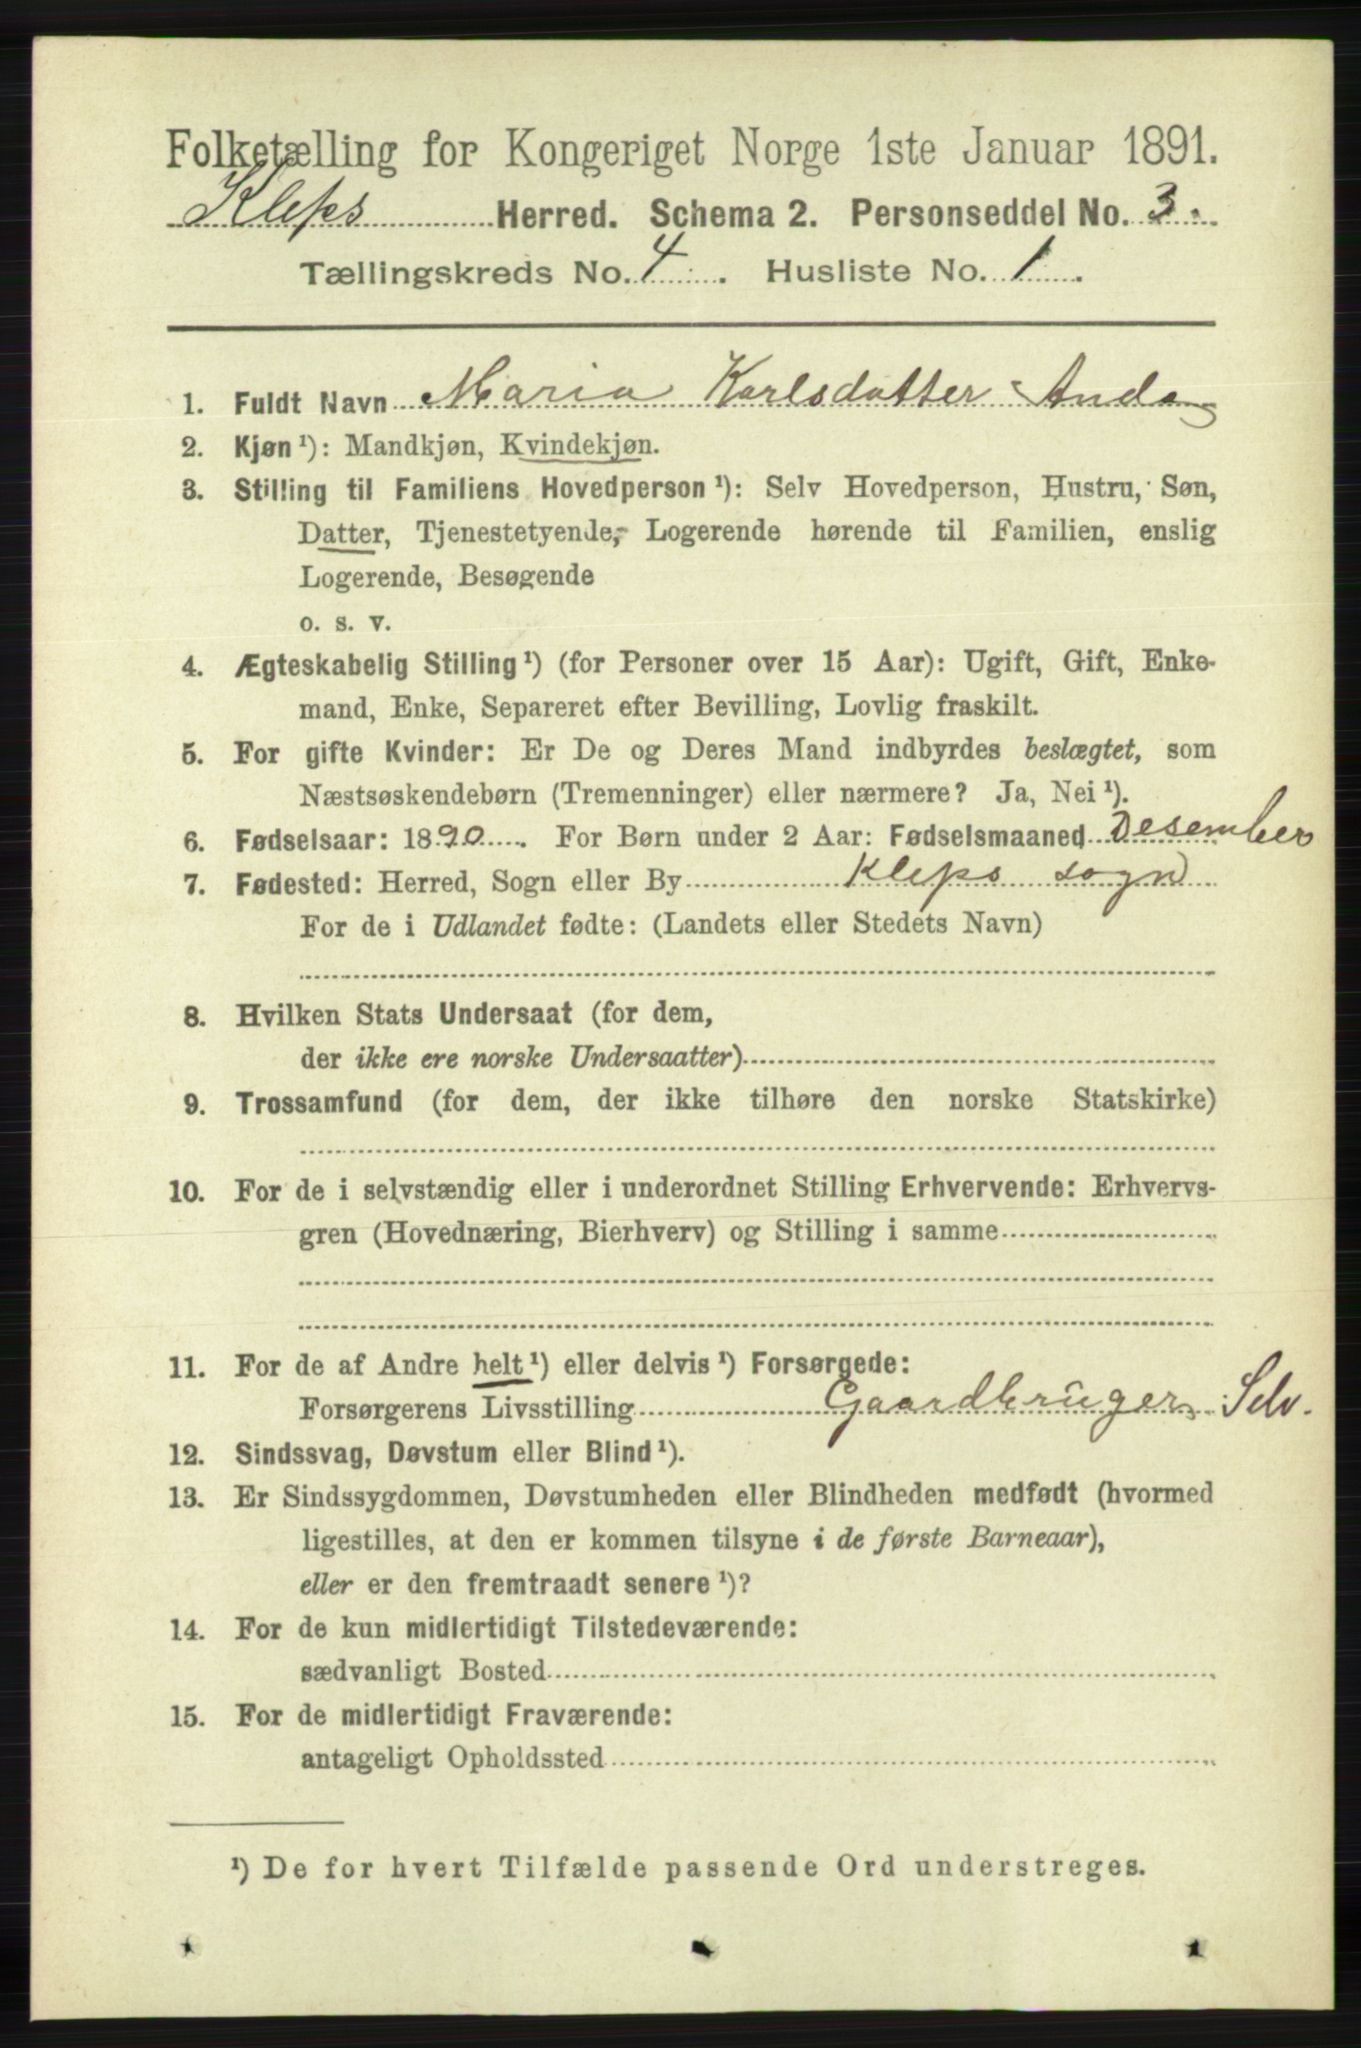 Folketælling for Kongeriget Norge 1ste Januar 1891.
Kleps Herred. Schema 2. Personseddel No. 3.
Tællingskreds No. 4. Husliste No. 1.
1. Fuldt Navn Maria Karlsdatter Anda
2. Kjøn ¹): Mandkjøn, Kvindekjøn.
3. Stilling til Familiens Hovedperson ¹): Selv Hovedperson, Hustru, Søn,
Datter, Tjenestetyende, Logerende hørende til Familien, enslig
Logerende, Besøgende
o. s. v.
4. Ægteskabelig Stilling ¹) (for Personer over 15 Aar): Ugift, Gift, Enke-
mand, Enke, Separeret efter Bevilling, Lovlig fraskilt.
5. For gifte Kvinder: Er De og Deres Mand indbyrdes beslægtet, som
Næstsøskendebørn (Tremenninger) eller nærmere? Ja, Nei ¹).
6. Fødselsaar: 1890. For Børn under 2 Aar: Fødselsmaaned Desember
7. Fødested: Herred, Sogn eller By Kleps sogn
For de i Udlandet fødte: (Landets eller Stedets Navn)
8. Hvilken Stats Undersaat (for dem,
der ikke ere norske Undersaatter)
9. Trossamfund (for dem, der ikke tilhøre den norske Statskirke)
10. For de i selvstændig eller i underordnet Stilling Erhvervende: Erhvervs-
gren (Hovednæring, Bierhverv) og Stilling i samme
11. For de af Andre helt ¹) eller delvis ¹) Forsørgede:
Forsørgerens Livsstilling Gaardbruger, Selv.
12. Sindssvag, Døvstum eller Blind ¹).
13. Er Sindssygdommen, Døvstumheden eller Blindheden medfødt (hvormed
ligestilles, at den er kommen tilsyne i de første Barneaar),
eller er den fremtraadt senere ¹)?
14. For de kun midlertidigt Tilstedeværende:
sædvanligt Bosted
15. For de midlertidigt Fraværende:
antageligt Opholdssted
¹) De for hvert Tilfælde passende Ord understreges.